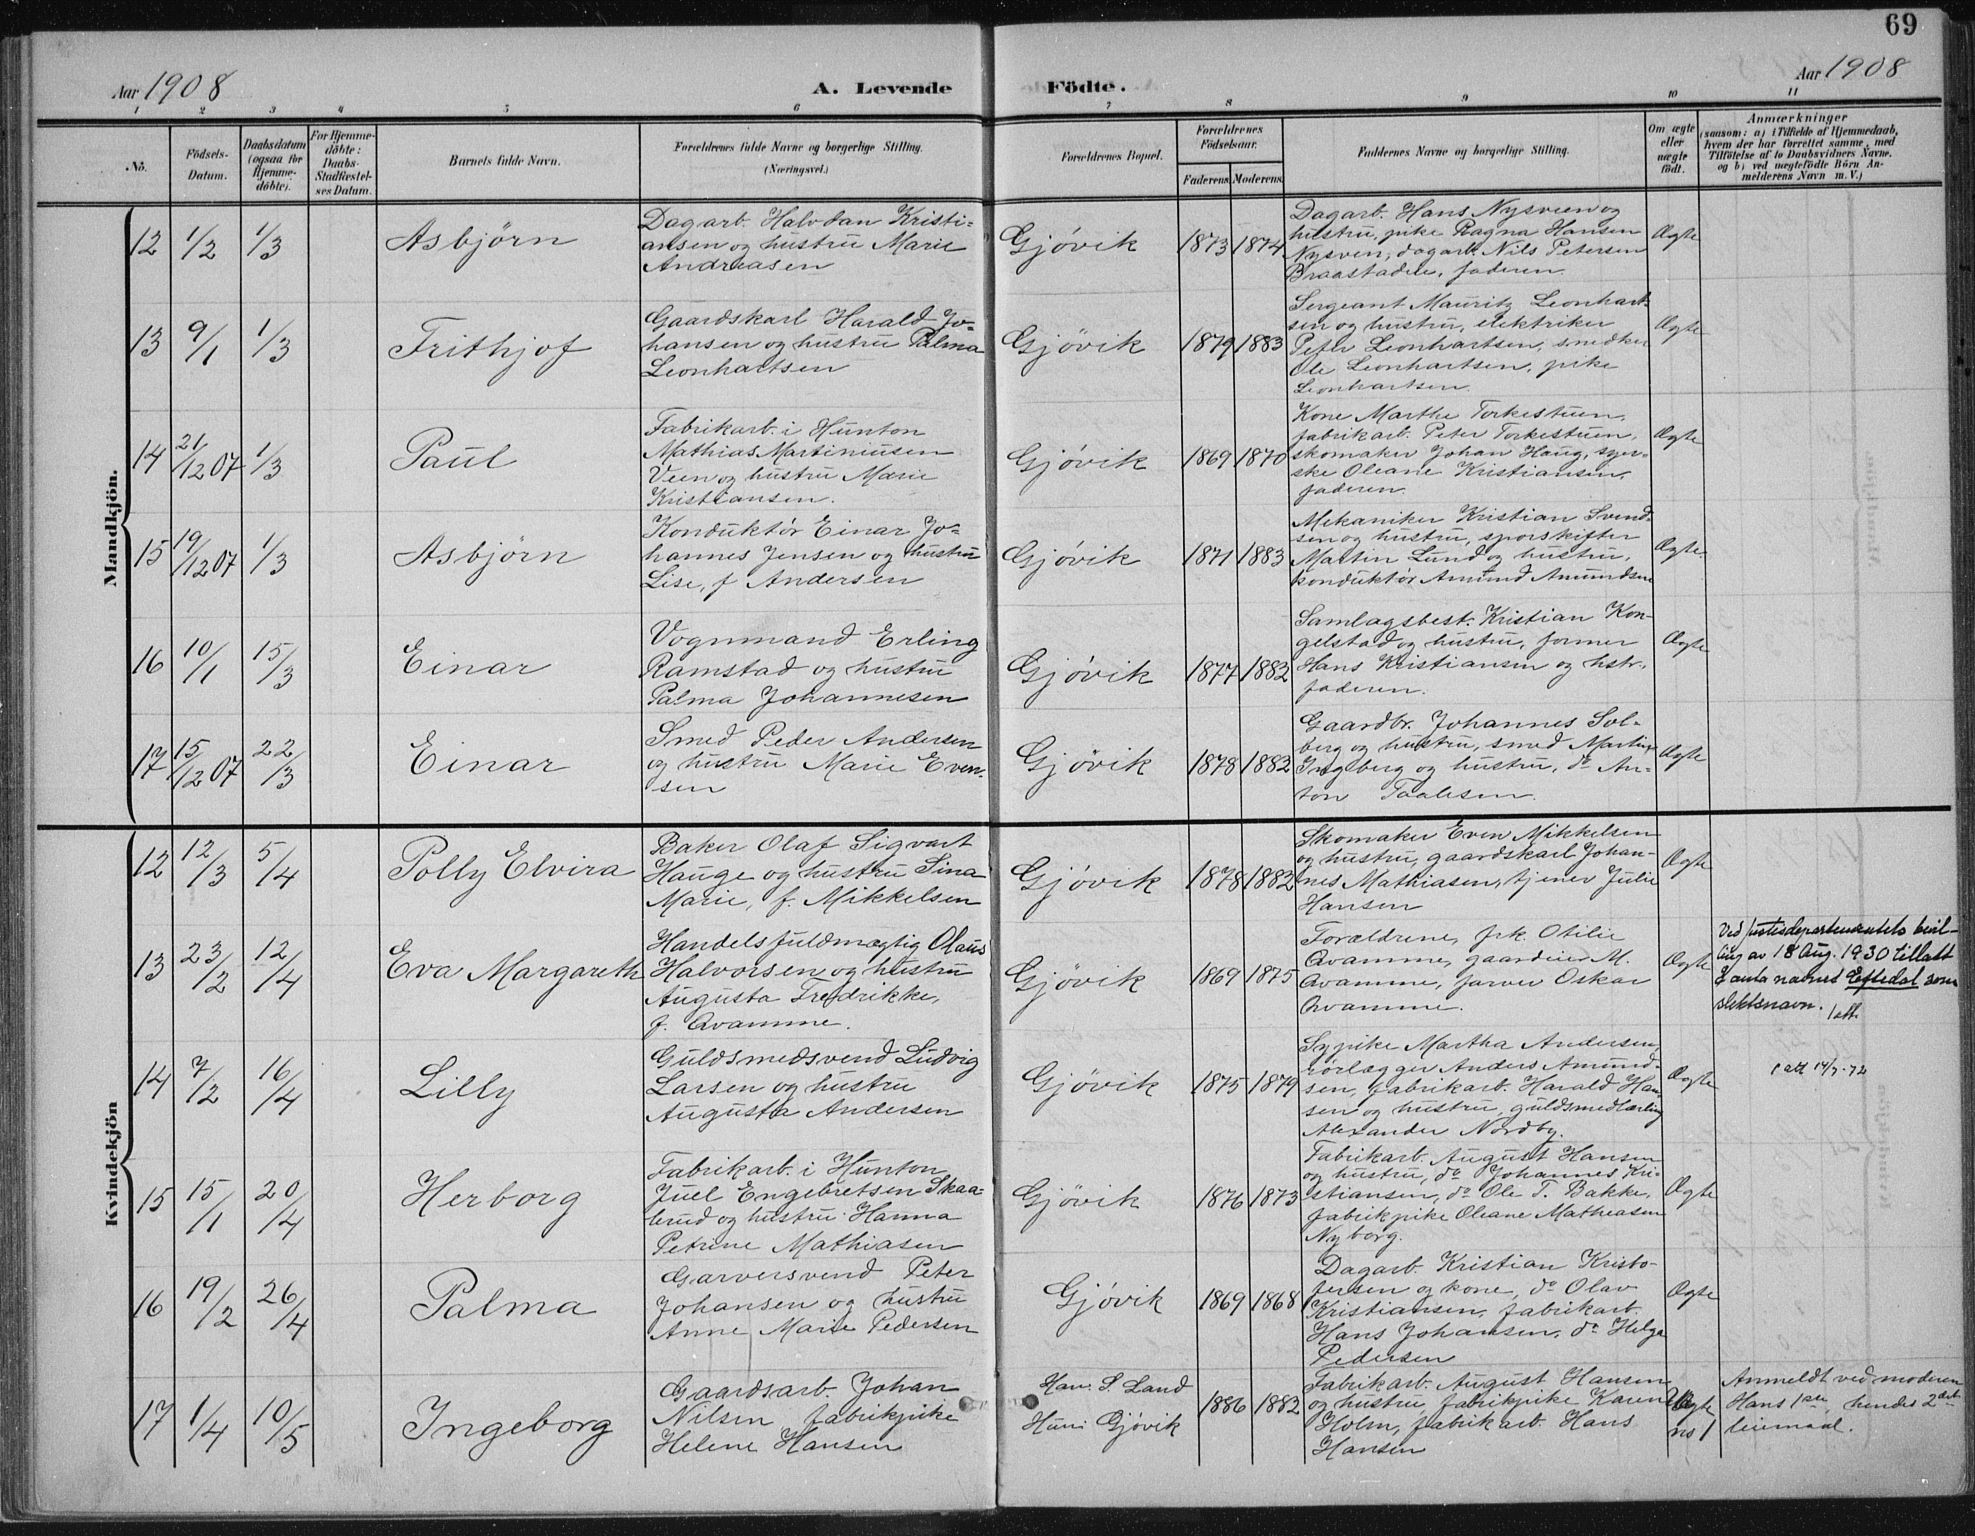 69
Aar 1908
A. Levende Födte.
Aar 1908
1 2 3 4 5 6 7 8 9 10 11
No.
Födsels-
Datum.
Daabsdatum
(ogsaa for
Hjemme-
döbte).
For Hjemme-
döbte:
Daabs-
Stadfæstel-
ses Datum.
Barnets fulde Navn.
Forældrenes fulde Navne og borgerlige Stilling.
(Næringsvei.)
Forældrenes Bopæl.
Forældrenes
Födselsaar.
Faderens. Moderens.
Faddernes Navne og borgerlige Stilling.
Om ægte
eller
uægte
födt.
Anmærkninger
(saasom: a) i Tilfælde af Hjemmedaab,
hvem der har forrettet samme, med
Tilföielse af to Daabsvidners Navne,
og b) ved uægtefödte Börn An-
melderens Navn m. V.)
Mandkjön.
12 1/2 1/3 Asbjörn
Dagarb. Halvdan Kristi-
ansen og hustru Marie
Andreasen
Gjóvik 1873 1874
Dagarb. Hans Nysveen og
hustru, pike Ragna Hansen
Nysven, dagarb. Nils Petersen
Braastadeie, faderen
Ægte
13 9/1 1/3 Frithjof
Gaardskarl Harald Jo-
hansen og hustru Palma
Leonhartsen
Gjövik 1879 1883
Sergeant Mauritz Leonhart-
sen og hustru, elektriker
Peter Leonhartsen, snedker
Ole Leonhartsen, pike
Leonhartsen
Ægte
14 21/12 07 1/3 Paul
Fabrikarb. i Hunton
Mathias Martiniusen
Veen og hustru Marie
Kristiansen.
Gjövik 1869 1870
Kone Marthe Torkestuen,
fabrikarb. Peter Torkestuen,
skomaker Johan Haug, syer-
ske Oleane Kristiansen,
faderen
Ægte
15 19/12 07 1/3 Asbjörn
Konduktör Einar Jo-
hannes Jensen og hustru
Lise, f. Andersen
Gjóvik 1871 1883
Mekaniker Kristian Svend-
sen og hustru, sporskifter
Martin Lund og hustru,
konduktör Amund Amundsen
Ægte
16 10/1 15/3 Einar
Vognmand Erling
Ramstad og hustru
Palma Johannesen
Gjóvik 1877 1882
Samlagsbest. Kristian Kon-
gelstad og hustru, former
Hans Kristiansen og hstr.
faderen.
Ægte
17 15/12 07 22/3 Einar
Smed Peder Andersen
og hustru Marie Even-
sen
Gjövik 1878 1882
Gaardbr. Johannes Sol-
berg og hustru, smed Martin
Ingeberg og hustru, do An-
ton Paalesen
Ægte
Kvindekjön
12 12/3 5/4 Polly Elvira
Baker Olaf Sigvart
Hauge og hustru Sina
Marie, f. Mikkelsen
Gjóvik 1878 1882
Skomaker Even Mikkelsen
og hustru, gaardskarl Johan-
nes Mathiasen, tjener Julie
Hansen
Ægte
13 23/2 12/4 Eva Margareth
Handelsfuldmægtig Olaus
Halvorsen og hustru
Augusta Fredrikke,
f. Avamme.
Gjövik 1869 1875
Forældrene, frk. Otilie
Avamme, gaardeier M.
Avamme, farver Oskar
Avamme.
Ægte
Ved Justisdepartementets bevil-
ling av 18 Aug. 1930 tillatt
å anta navnet Eftedal som
slektsnavn. 1 att.
14 7/2 16/4 Lilly
Guldsmedsvend Ludvig
Larsen og hustru
Augusta Andersen
Gjóvik 1875 1879
Sypike Martha Andersen,
rörlægger Anders Amund-
sen, fabrikarb. Harald Han-
sen og hustru, guldsmedlærling
Alexander Nordby.
Ægte
15 15/1 20/4 Herborg
Fabrikarb. i Hunton
Juel Engebretsen Skaa-
brud og hustru Hanna
Petrine Mathiasen
Gjövik 1876 1873
Fabrikarb. August Hansen
og hustru, do Johannes Kri-
stiansen, do Ole T. Bakke,
fabrikpike Oleane Matheasen
Nyborg.
Ægte
16 19/2 26/4 Palma
Garversvend Peter
Johansen og hustru
Anne Marie Pedersen
Gjóvik 1869 1868
Dagarb. Kristian Kristo-
fersen og kone, do Olav
Kristiansen, fabrikarb.
Hans Johansen, do Helga
Pedersen
Ægte
17 1/4 10/5 Ingeborg
Gaardsarb. Johan
Nilsen fabrikpike
Helene Hansen
Han: S. Land
Hun: Gjövik
1886 1882
Fabrikarb. August Hansen
og hustru, fabrikpike Karen
Holm, fabrikarb. Hans
Hansen
Uægte
no 1
Anmeldt ved moderen
Hans 1ste, hendes 2det
leiermaal.